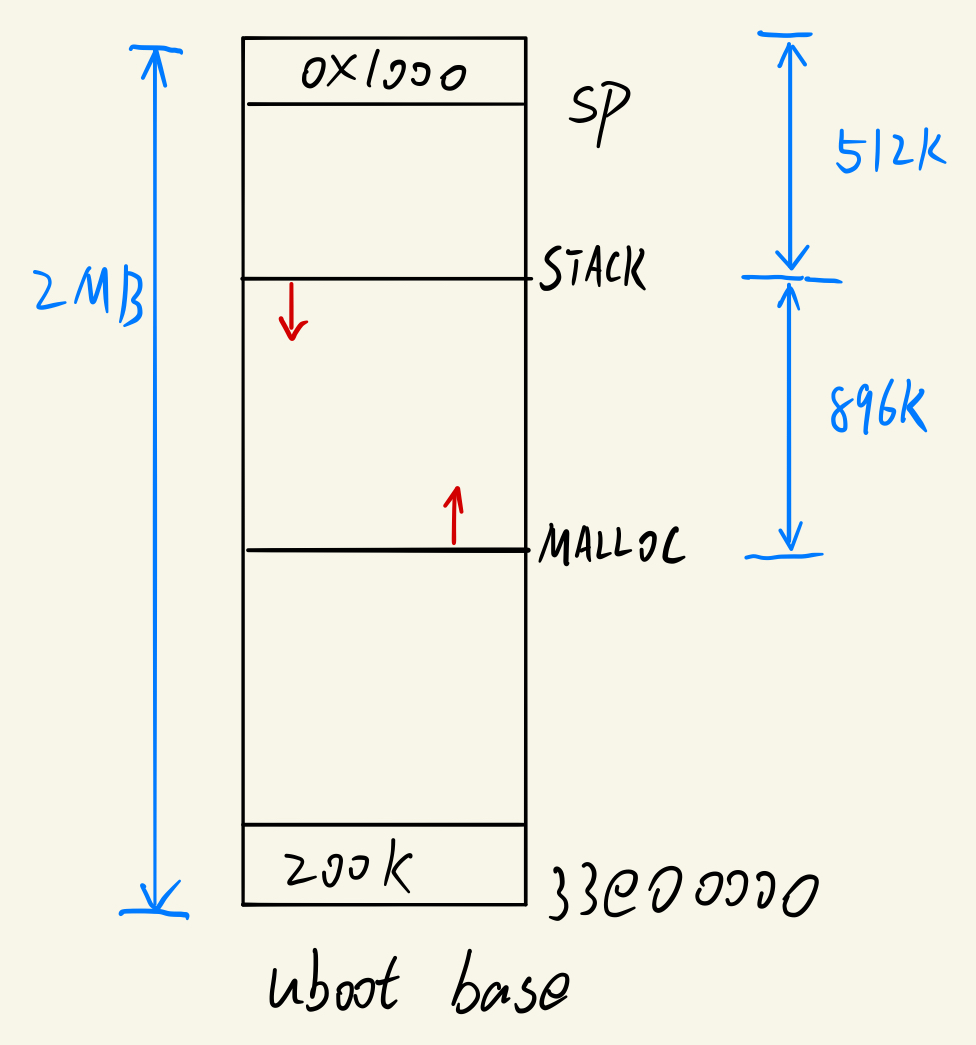 0X1000
SP
512K
STACK
2MB
896K
MALLOC
200K
33e00000
uboot base